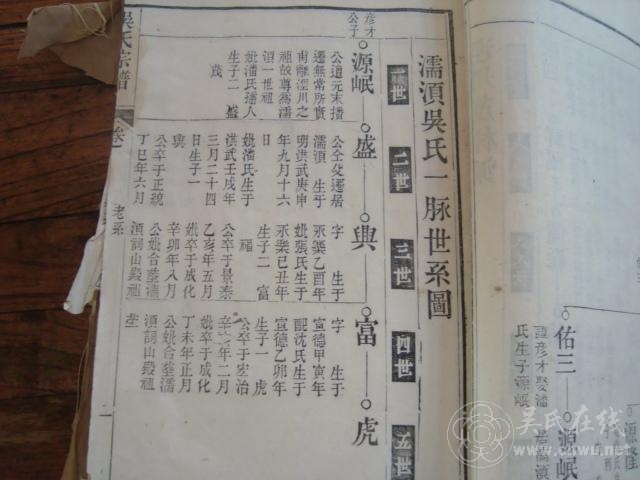 佑三
源岷
諱彥才娶潘
氏生子源岷
濡湏吳氏一脉世系圖
一世
二世
三世
四世
五世
彥才
公子
源岷
盛
興
富
虎
公週元末播
遷無常所實
南離涇川之
祖故尊為濡
湏一世祖
妣潘氏播人
生子二 盛
茂
公仝父遷居
濡湏 生于
明洪武庚申
年九月十六
妣潘氏生于
洪武壬戌年
三月二十四
日生子一
興
公卒于正統
丁巳年六月
字 生于
永樂乙酉年
妣張氏生于
永樂己丑年
生子二 富
福
公卒于景泰
乙亥年五月
妣卒于成化
辛卯年八月
公妣合塟濡
湏詞山
字 生于
宣德甲寅年
配沈氏生于
宣德乙卯年
生子一 虎
公卒于宏治
年二月
妣卒于成化
丁未年正月
公妣合塟濡
湏詞山
吳氏宗譜
卷
吳氏在线
www.cnwu.net